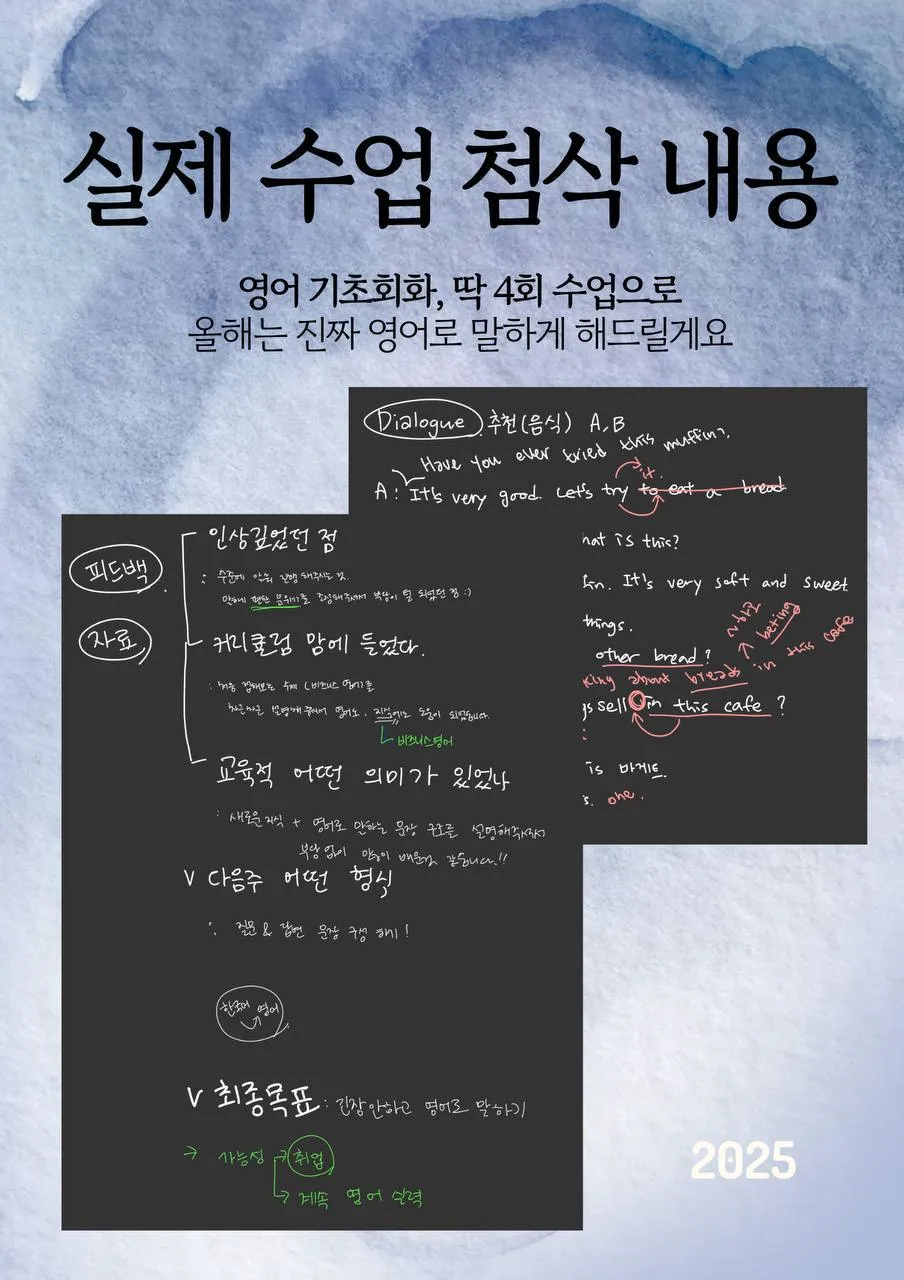 실제 수업 첨삭 내용
영어 기초회화, 딱 4회 수업으로
올해는 진짜 영어로 말하게 해드릴게요
Dialogue 추천(음식) A,B
Have you ever tried this muffin?
A: It's very good. Let's try to eat a bread
it.
hat is this?
fin. It's very soft and sweet
things.
other bread?
king about breads in this cafe
being
s sell in this cafe ?
is 바게트.
s. one.
피드백
자료
인상깊었던 점
: 수준에 맞춰 진행해주시는 것.
편한 분위기를 조성해주셔서 부담이 덜 되었던 점 :)
커리큘럼 맘에 들었다.
: 처음 접해보는 주제 (비즈니스 영어)를
차근차근 설명해주셔서 영어도, 지식에도 도움이 되었습니다.
비즈니스영어
교육적 어떤 의미가 있었나
: 새로운 지식 + 영어로 말하는 문장 구조를 설명해주셔서
부담없이 많이 배운것 같습니다.!!
V 다음주 어떤 형식
: 질문 & 답변 문장 구성 하기!
한국어 영어
V 최종목표 : 긴장안하고 영어로 말하기
→ 가능성 → 취업
→ 계속 영어 실력
2025